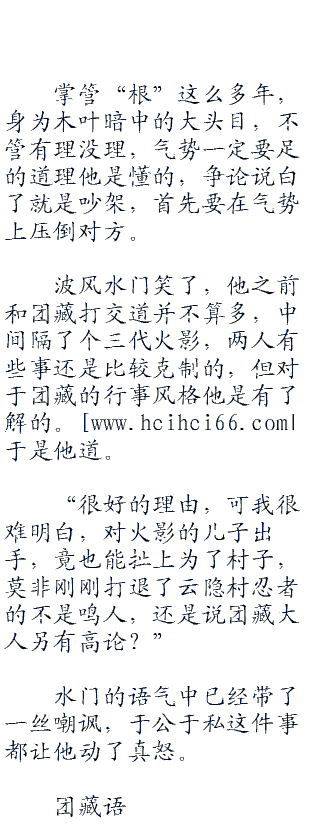 掌管“根”这么多年，
身为木叶暗中的大头目，不
管有理没理，气势一定要足
的道理他是懂的，争论说白
了就是吵架，首先要在气势
上压倒对方。
波风水门笑了，他之前
和团藏打交道并不算多，中
间隔了个三代火影，两人有
些事还是比较克制的，但对
于团藏的行事风格他是有了
解的。[www.hcihci66.com|
于是他道。
“很好的理由，可我很
难明白，对火影的儿子出
手，竟也能扯上为了村子，
莫非刚刚打退了云隐村忍者
的不是鸣人，还是说团藏大
人另有高论？”
水门的语气中已经带了
一丝嘲讽，于公于私这件事
都让他动了真怒。
团藏语